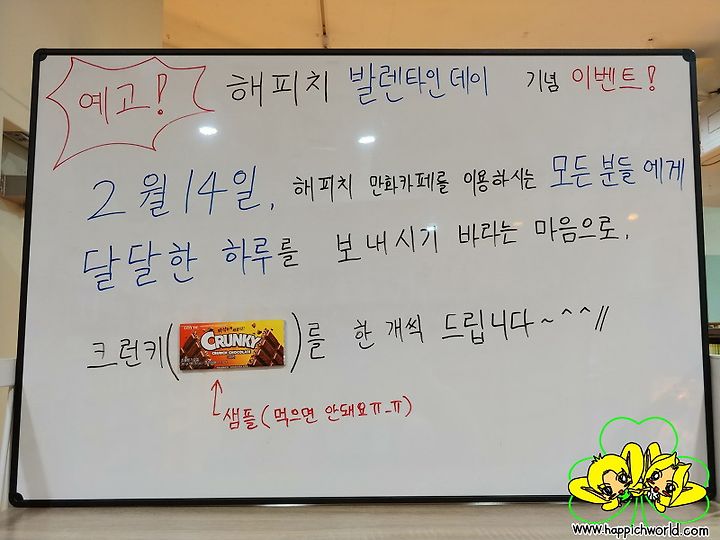 예고! 해피치 발렌타인데이 기념 이벤트!
2월14일, 해피치 만화카페를 이용하시는 모든 분들에게
달달한 하루를 보내시기 바라는 마음으로,
크런키( CRUNKY )를 한 개씩 드립니다~^^//
CRUNCH CHOCOLATE
샘플(먹으면 안돼요ㅠ_ㅠ)
www.happichworld.com